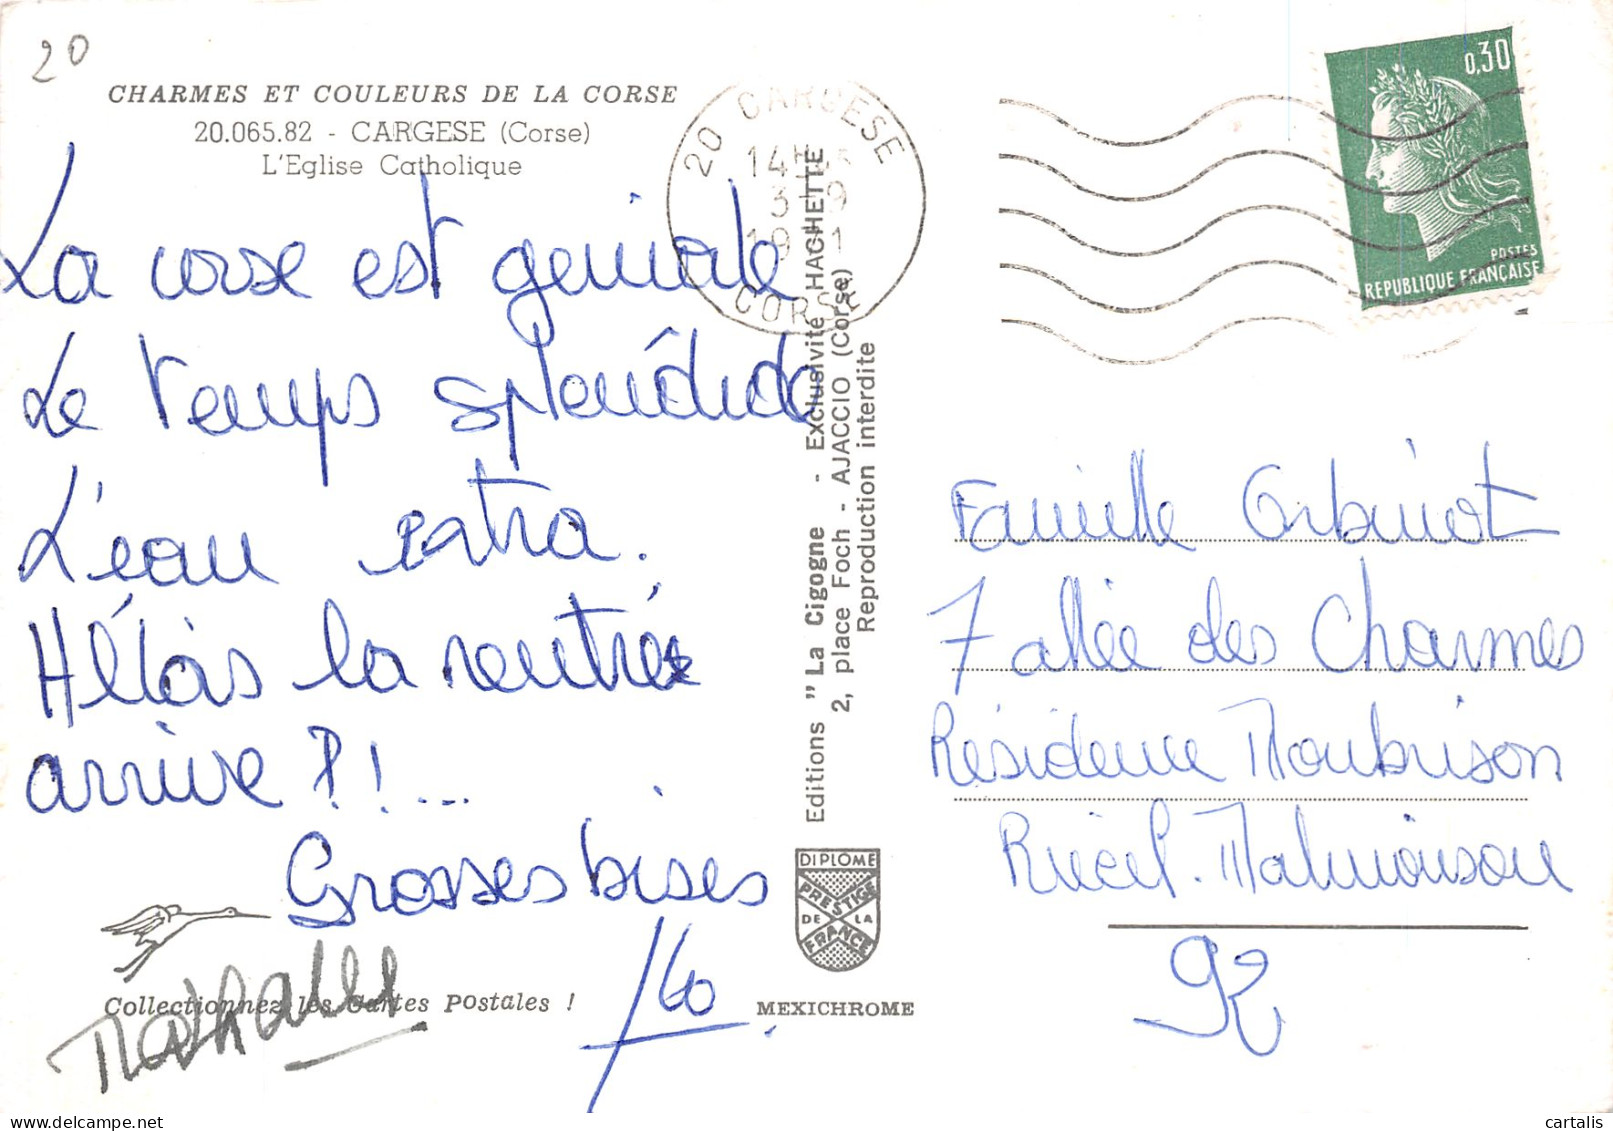 20
CHARMES ET COULEURS DE LA CORSE
20.065.82 - CARGESE (Corse)
L'Eglise Catholique
La corse est geniale
Le temps splendide
L'eau extra.
Hélas la rentrée
arrive ?!...
Grosses bises
Nathalie
Collectionnez les Cartes Postales !
MEXICHROME
Editions "La Cigogne - Exclusivité HACHETTE
2, place Foch - AJACCIO (Corse)
Reproduction interdite
DIPLOME
PRESTIGE
DE LA
FRANCE
20 CARGESE
14H
3-9
CORSE
0,30
POSTES
REPUBLIQUE FRANÇAISE
Famille
7 allée des Charmes
Résidence Montbrison
Rueil. Malmaison
92
cartalis